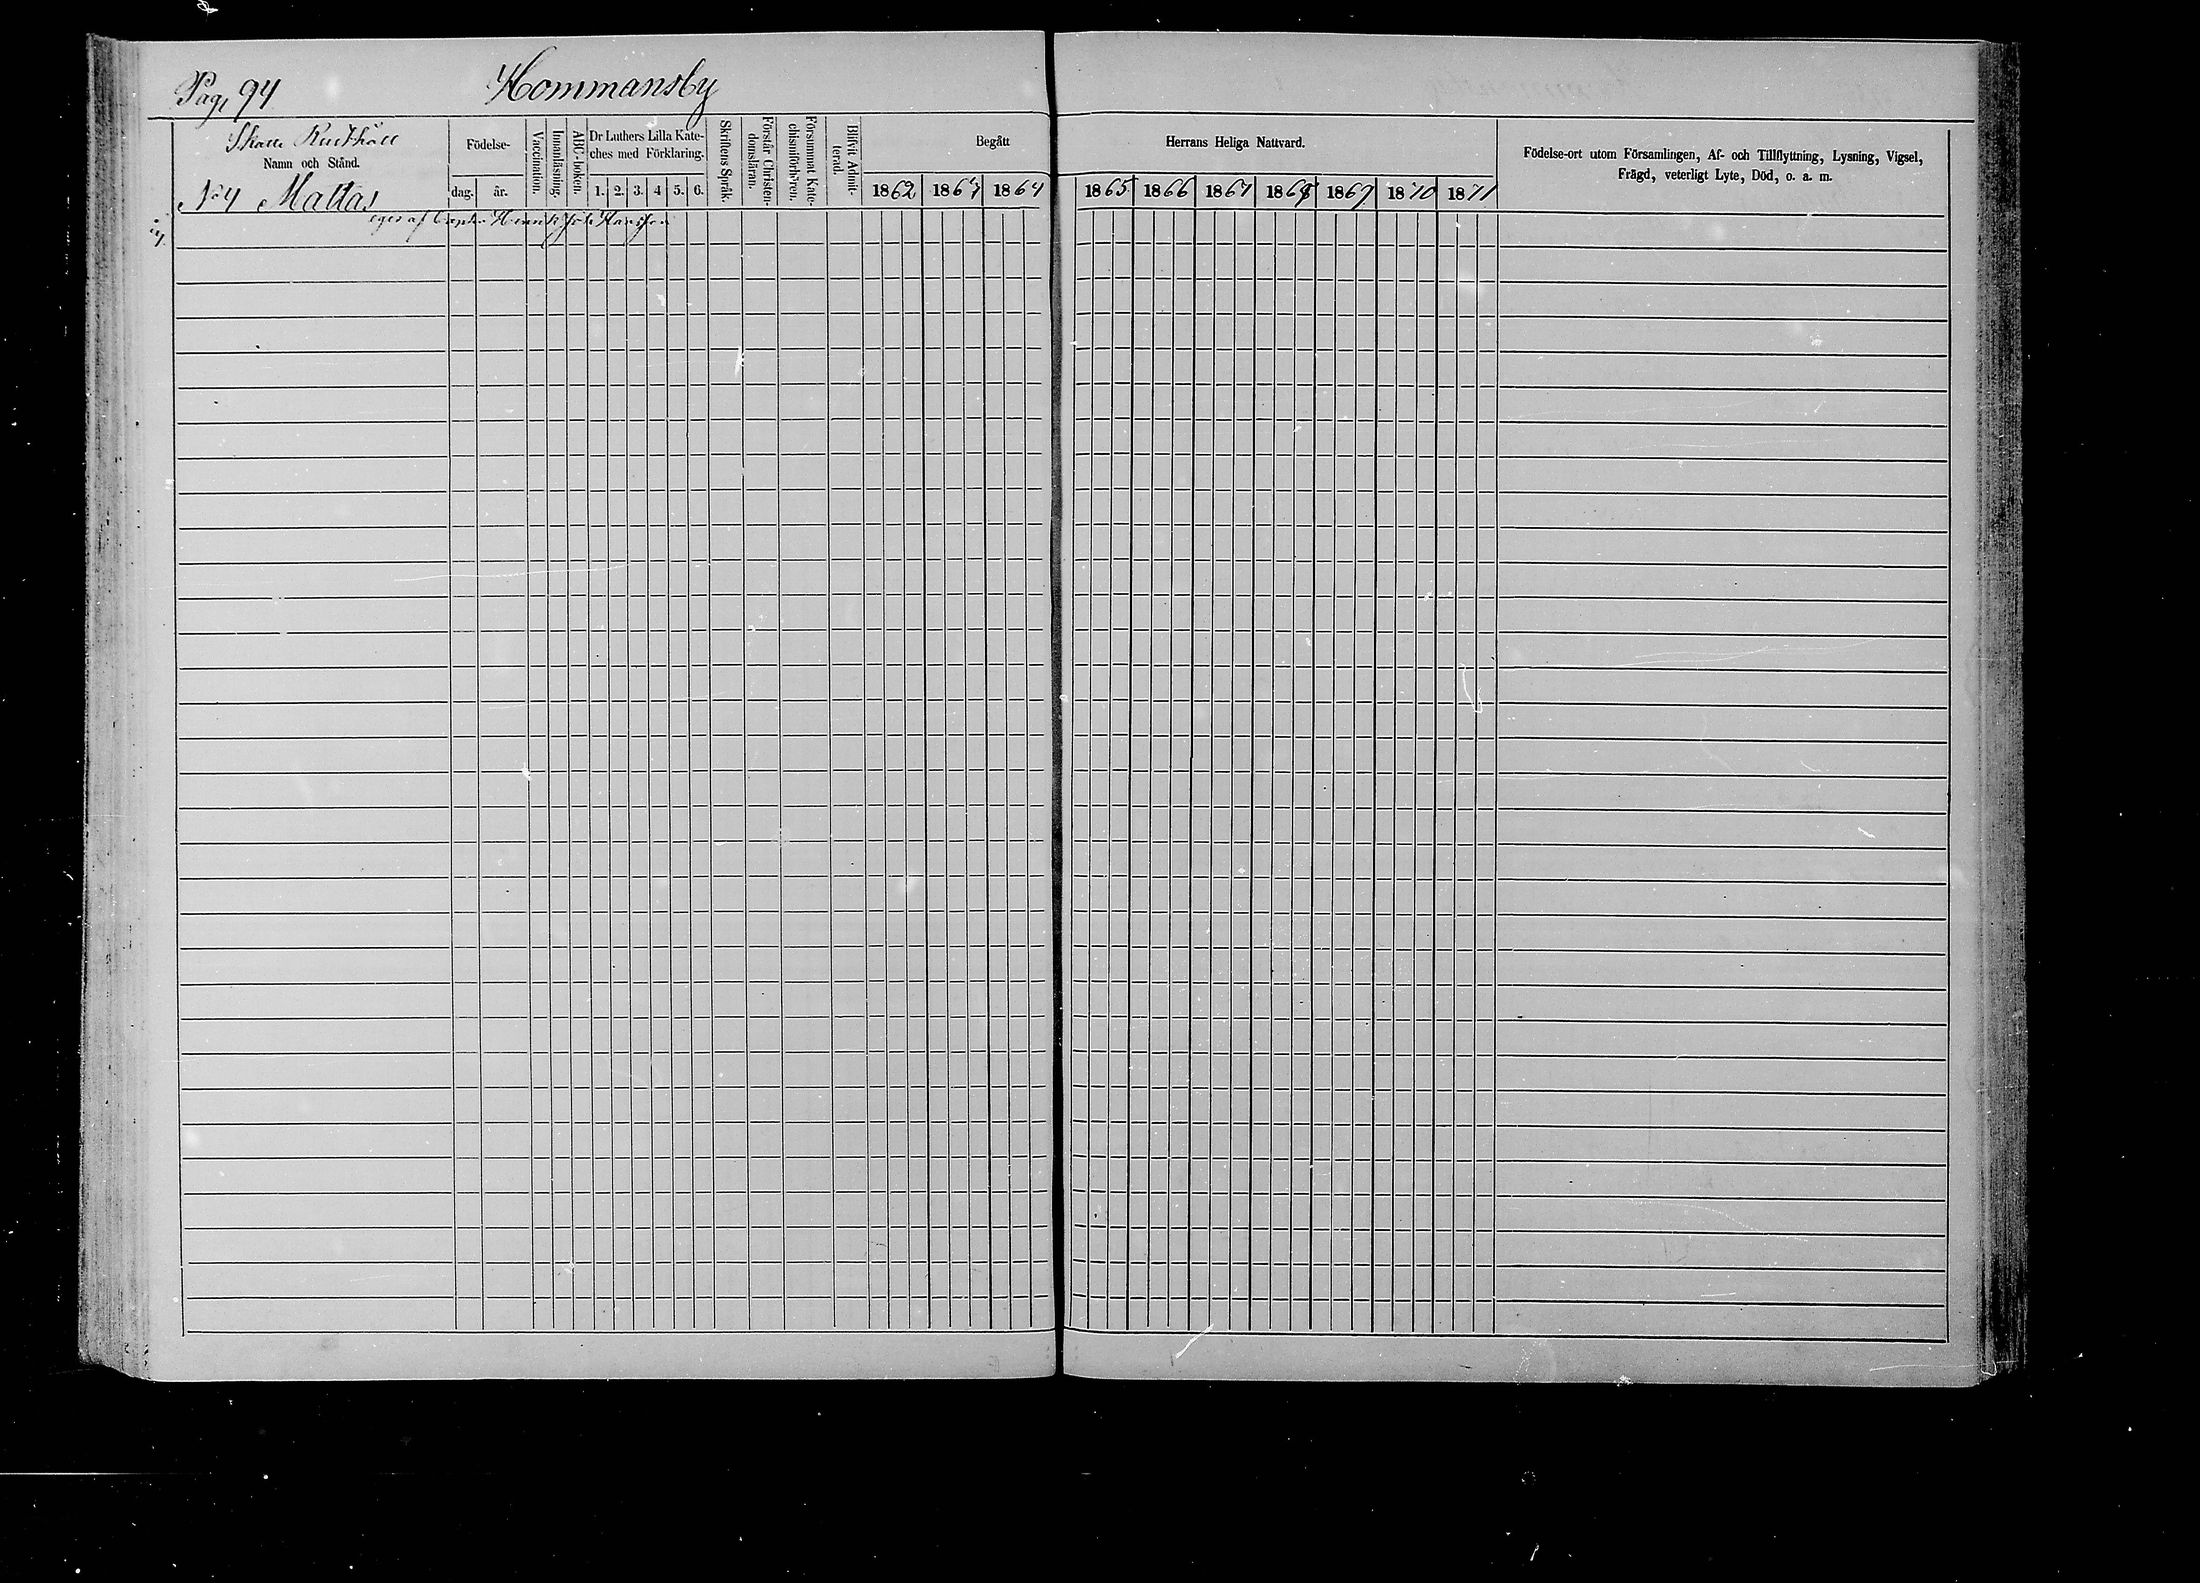 Pag. 94
Hommansby
Skatte Rusthåll
Namn och Stånd.
No 4 Mattas
Födelse-
dag.
år.
Vaccination.
Innanläsning.
ABC-boken.
Dr Luthers Lilla Kate-
ches med Förklaring.
1. 2. 3. 4 5. 6.
Skriftens Språk.
Förstår Christen-
domsläran.
Försummat Kate-
chismiförhören.
Blifvit Admit-
terad.
Begått
1862 1863 1864
Herrans Heliga Nattvard.
1865 1866 1867 1868 1869 1870 1871
Födelse-ort utom Församlingen, Af- och Tillflyttning, Lysning, Vigsel,
Frägd, veterligt Lyte, Död, o. a. m.
eges af